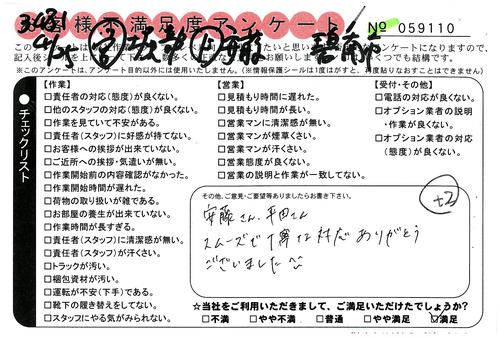 お客様不満足度アンケート
No 059110
【作業】
□責任者の対応(態度)が良くない。
□他のスタッフの対応(態度)が良くない。
□作業を見ていて不安がある。
□責任者(スタッフ)に好感が持てない。
□お客様への挨拶が出来ていない。
□ご近所への挨拶・気遣いが無い。
□作業開始前の内容確認がなかった。
□作業開始時間が遅れた。
□荷物の取り扱いが雑である。
□お部屋の養生が出来ていない。
□作業時間が長すぎる。
□責任者(スタッフ)に清潔感が無い。
□責任者(スタッフ)が汗くさい。
□トラックが汚い。
□梱包資材が汚い。
□運転が不安(下手)である。
□靴下の履き替えをしてない。
□スタッフにやる気がみられない。
【営業】
□見積もり時間に遅れた。
□見積もり時間が長い。
□営業マンに清潔感が無い。
□営業マンが煙草くさい。
□営業マンが汗くさい。
□営業態度が良くない。
□営業の説明と作業が一致してない。
【受付・その他】
□電話の対応が良くない。
□オプション業者の説明
・作業が良くない。
□オプション業者の対応
(態度)が良くない。
●チェックリスト
その他、ご意見・ご要望等ありましたらお書き下さい。
+2
安藤さん、平田さん
スムーズで丁寧な対応ありがとう
ございました
☆当社をご利用いただきまして、ご満足いただけたでしょうか?
□不満 □やや不満 □普通 □やや満足 □満足